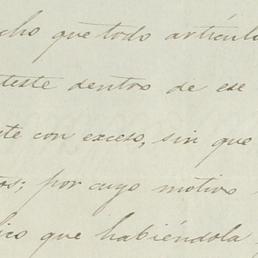 cho que todo artícul
teste dentro de ese
te con exceso, sin que
os; por cuyo motivo
ico que habiéndola